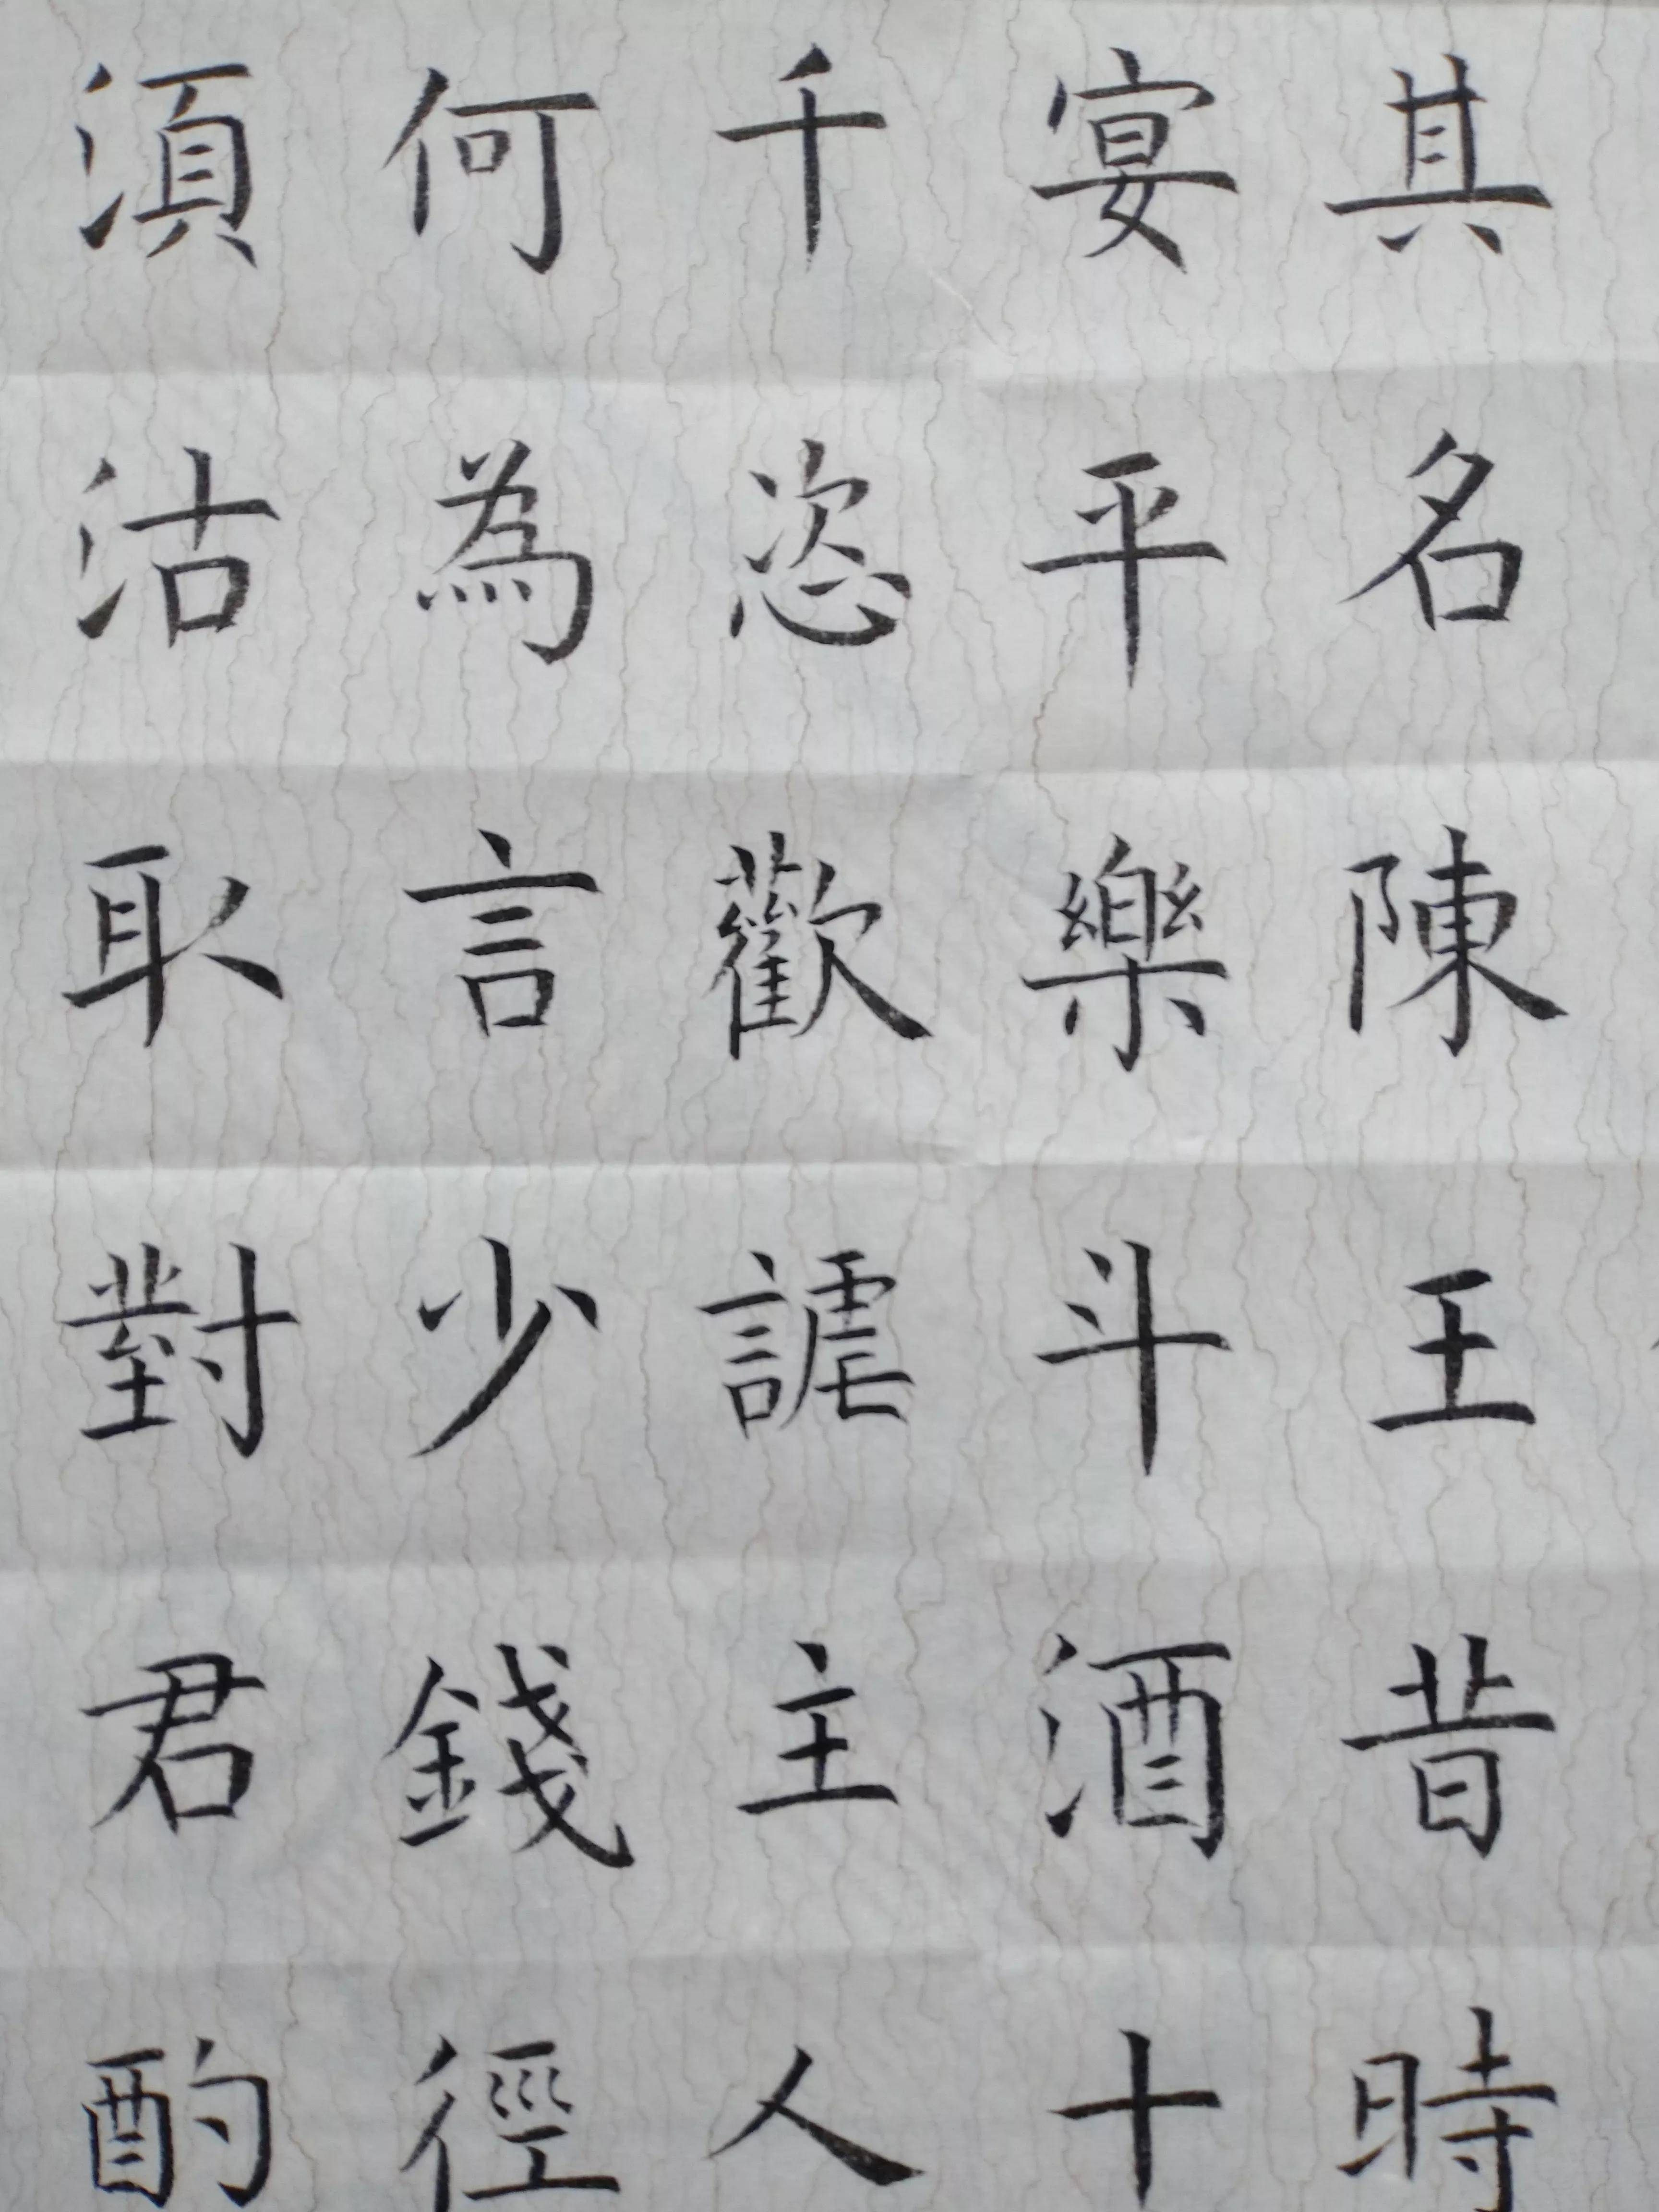 其名陳王昔時
宴平樂斗酒十
千恣歡謔主人
何為言少錢徑
須沽取對君酌